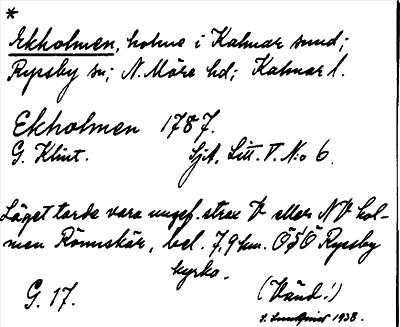 *
Ekholmen, holme i Kalmar sund;
Ryssby sn; N. Möre hd; Kalmar l.
Ekholmen 1787.
G. Klint. Sjk. Litt. V. No 6.
Läget torde vara ungef. strax V eller NV hol-
men Rönnskär, bel. 7,9 km. ÖSÖ Ryssby
kyrka.
G. 17. (Vänd!)
S. 1938.